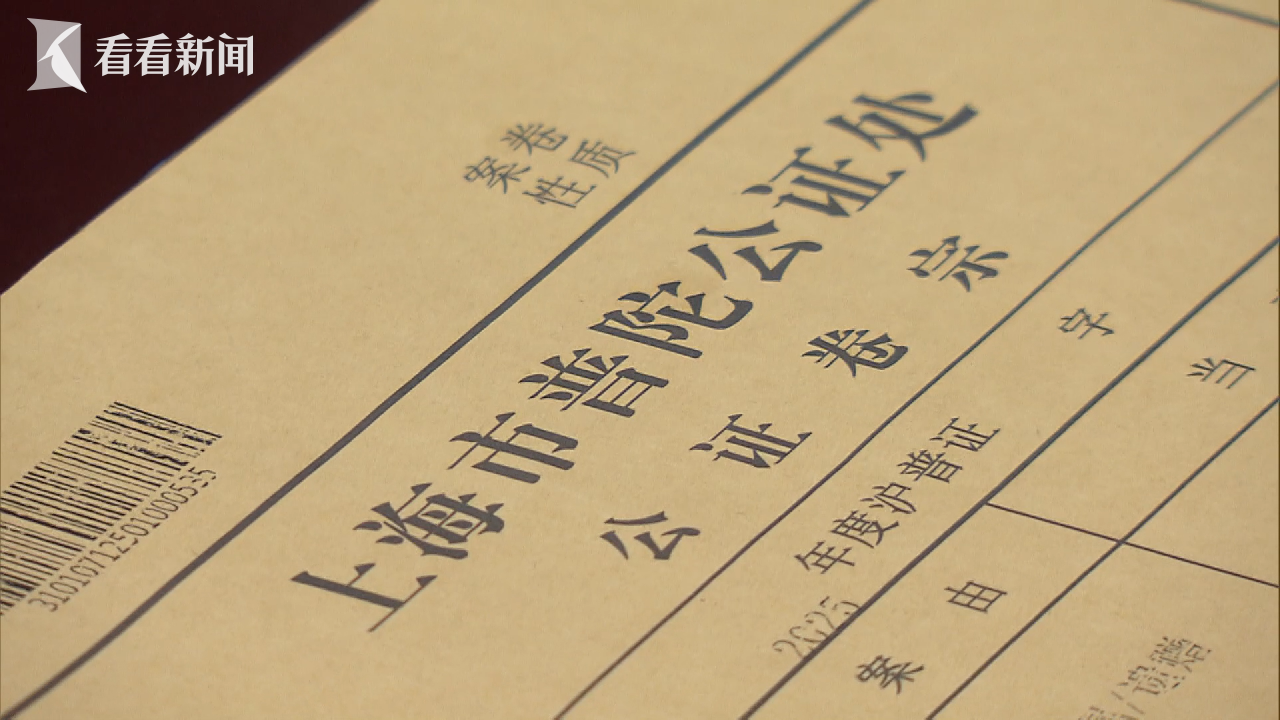 看看新闻
案卷
性质
上海市普陀公证处
公证卷宗
2025 年度沪普证 字
案由
当
遗赠
310107125010005​35